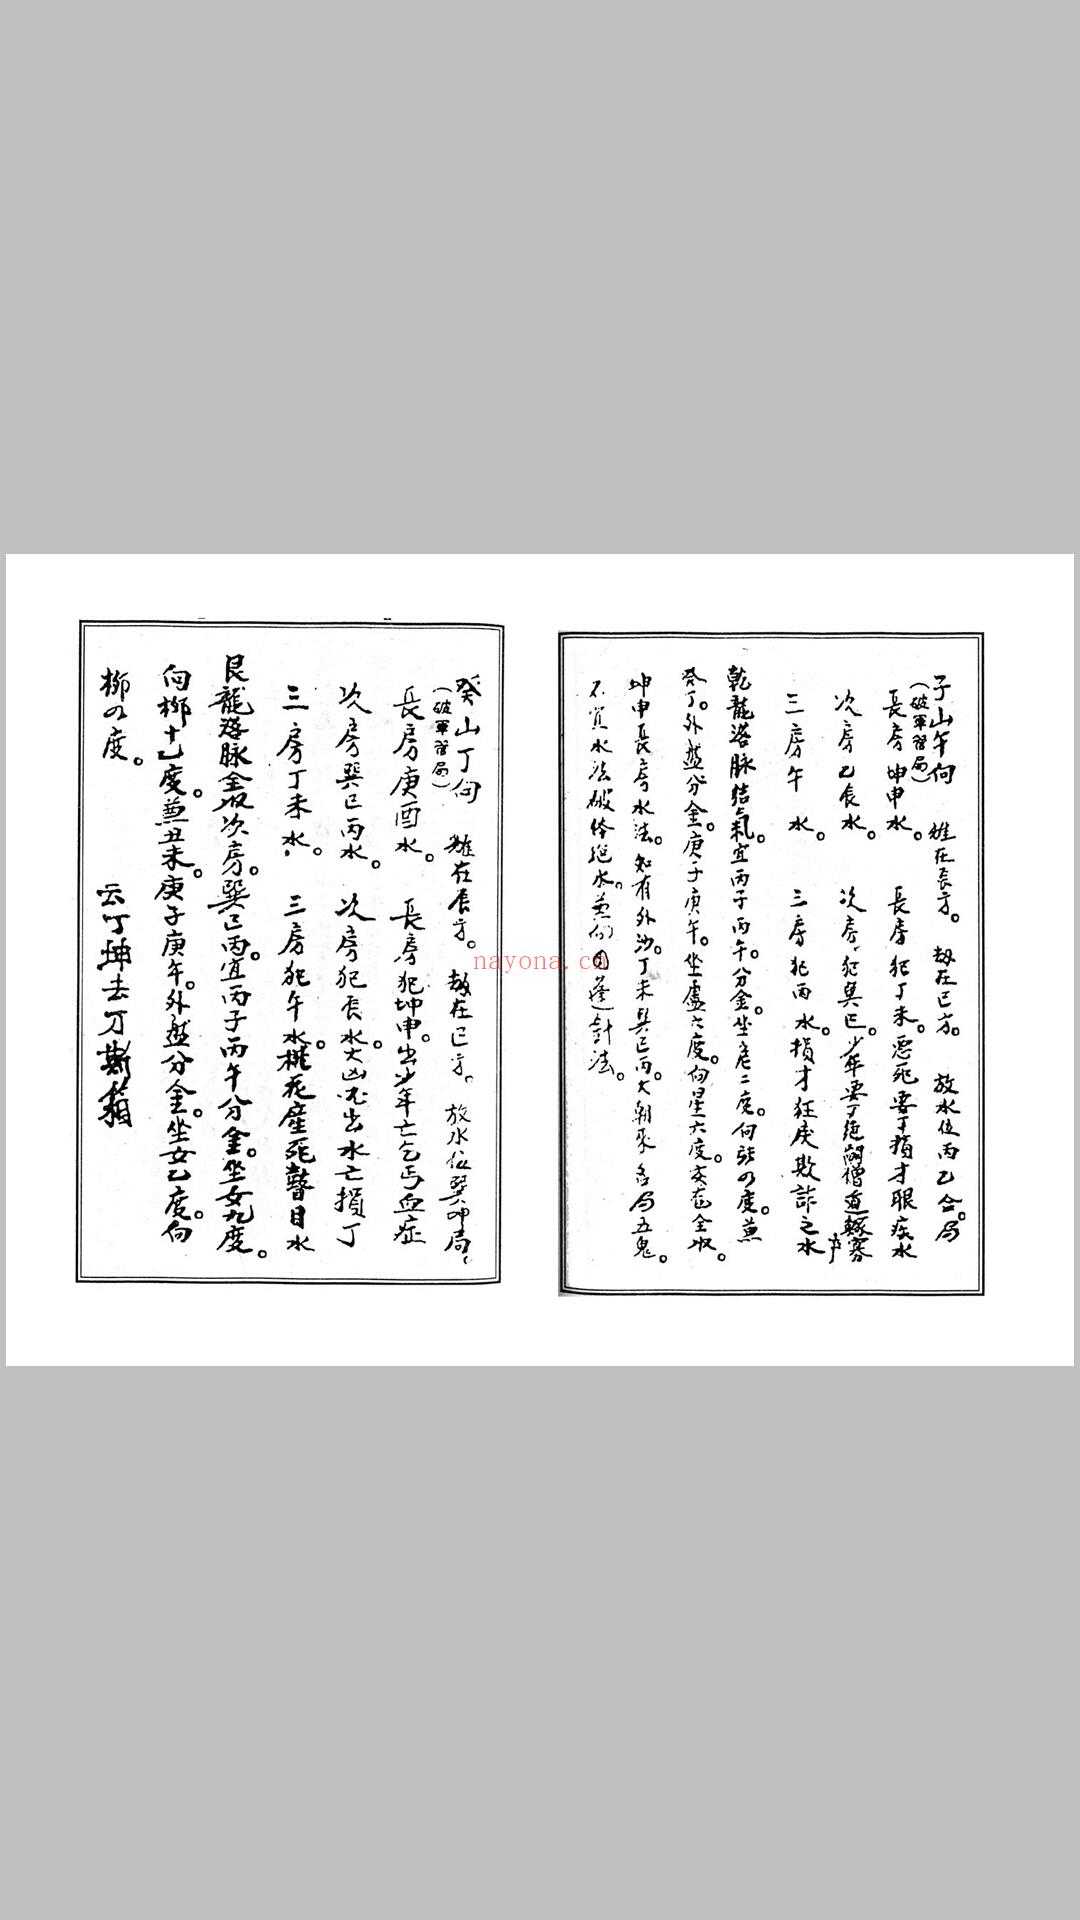 子山午向 雄在辰方。劫在巳方。放水位丙乙合。局
(破軍習局)
長房坤申水。長房犯丁未。惡死要丁損才眼疾水
次房乙辰水。次房犯巽巳。少年要丁絕嗣僧道
三房午水。三房犯丙水。損才狂戾欺詐之水
乾龍落脉結氣。宜丙子丙午。分金。坐危二度。向張四度。兼
癸丁。外盤分金。庚子庚午。坐虛六度。向星六度。交在全收。
坤申長房水法。知有外沙。丁未巽巳丙。大朝來合局五鬼。
不宜水法破 絕水。兼 蓬針法。
nayona.cn
癸山丁向 雄在辰方。劫在巳方。放水位巽坤局。
(破軍習局)
長房庚酉水。長房犯坤申。出少年亡乞丐血症
次房巽巳丙水。次房犯辰水。大凶 出水亡損丁
三房丁未水。三房犯午水。桃花產死瞽目水
艮龍落脉全收次房。巽巳丙。宜丙子丙午分金。坐女九度。
向柳十乙度。兼丑未。庚子庚午。外盤分金。坐女乙度。向
柳四度。 云丁坤去丁